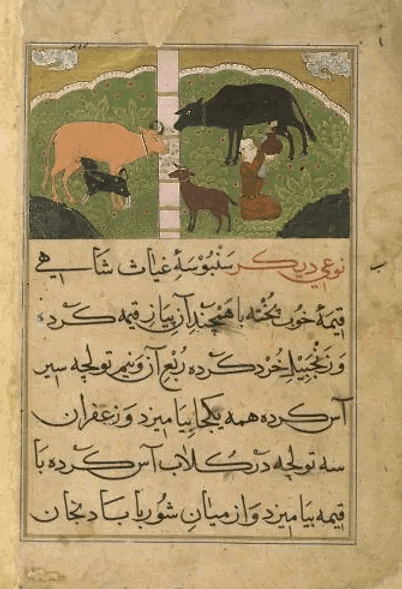 نوعی دیکر سنبوسهٔ غیاث شاهی
قیمهٔ خوب پخته با همچند آن پیاز قیمه کرده
و زنجبیل خرد کرده ربع آن و نیم تولچه سیر
آس کرده همه یکجا بیامیزد و زعفران
سه تولچه در کلاب آس کرده با
قیمه بیامیزد و از میان شوربا بادنجان